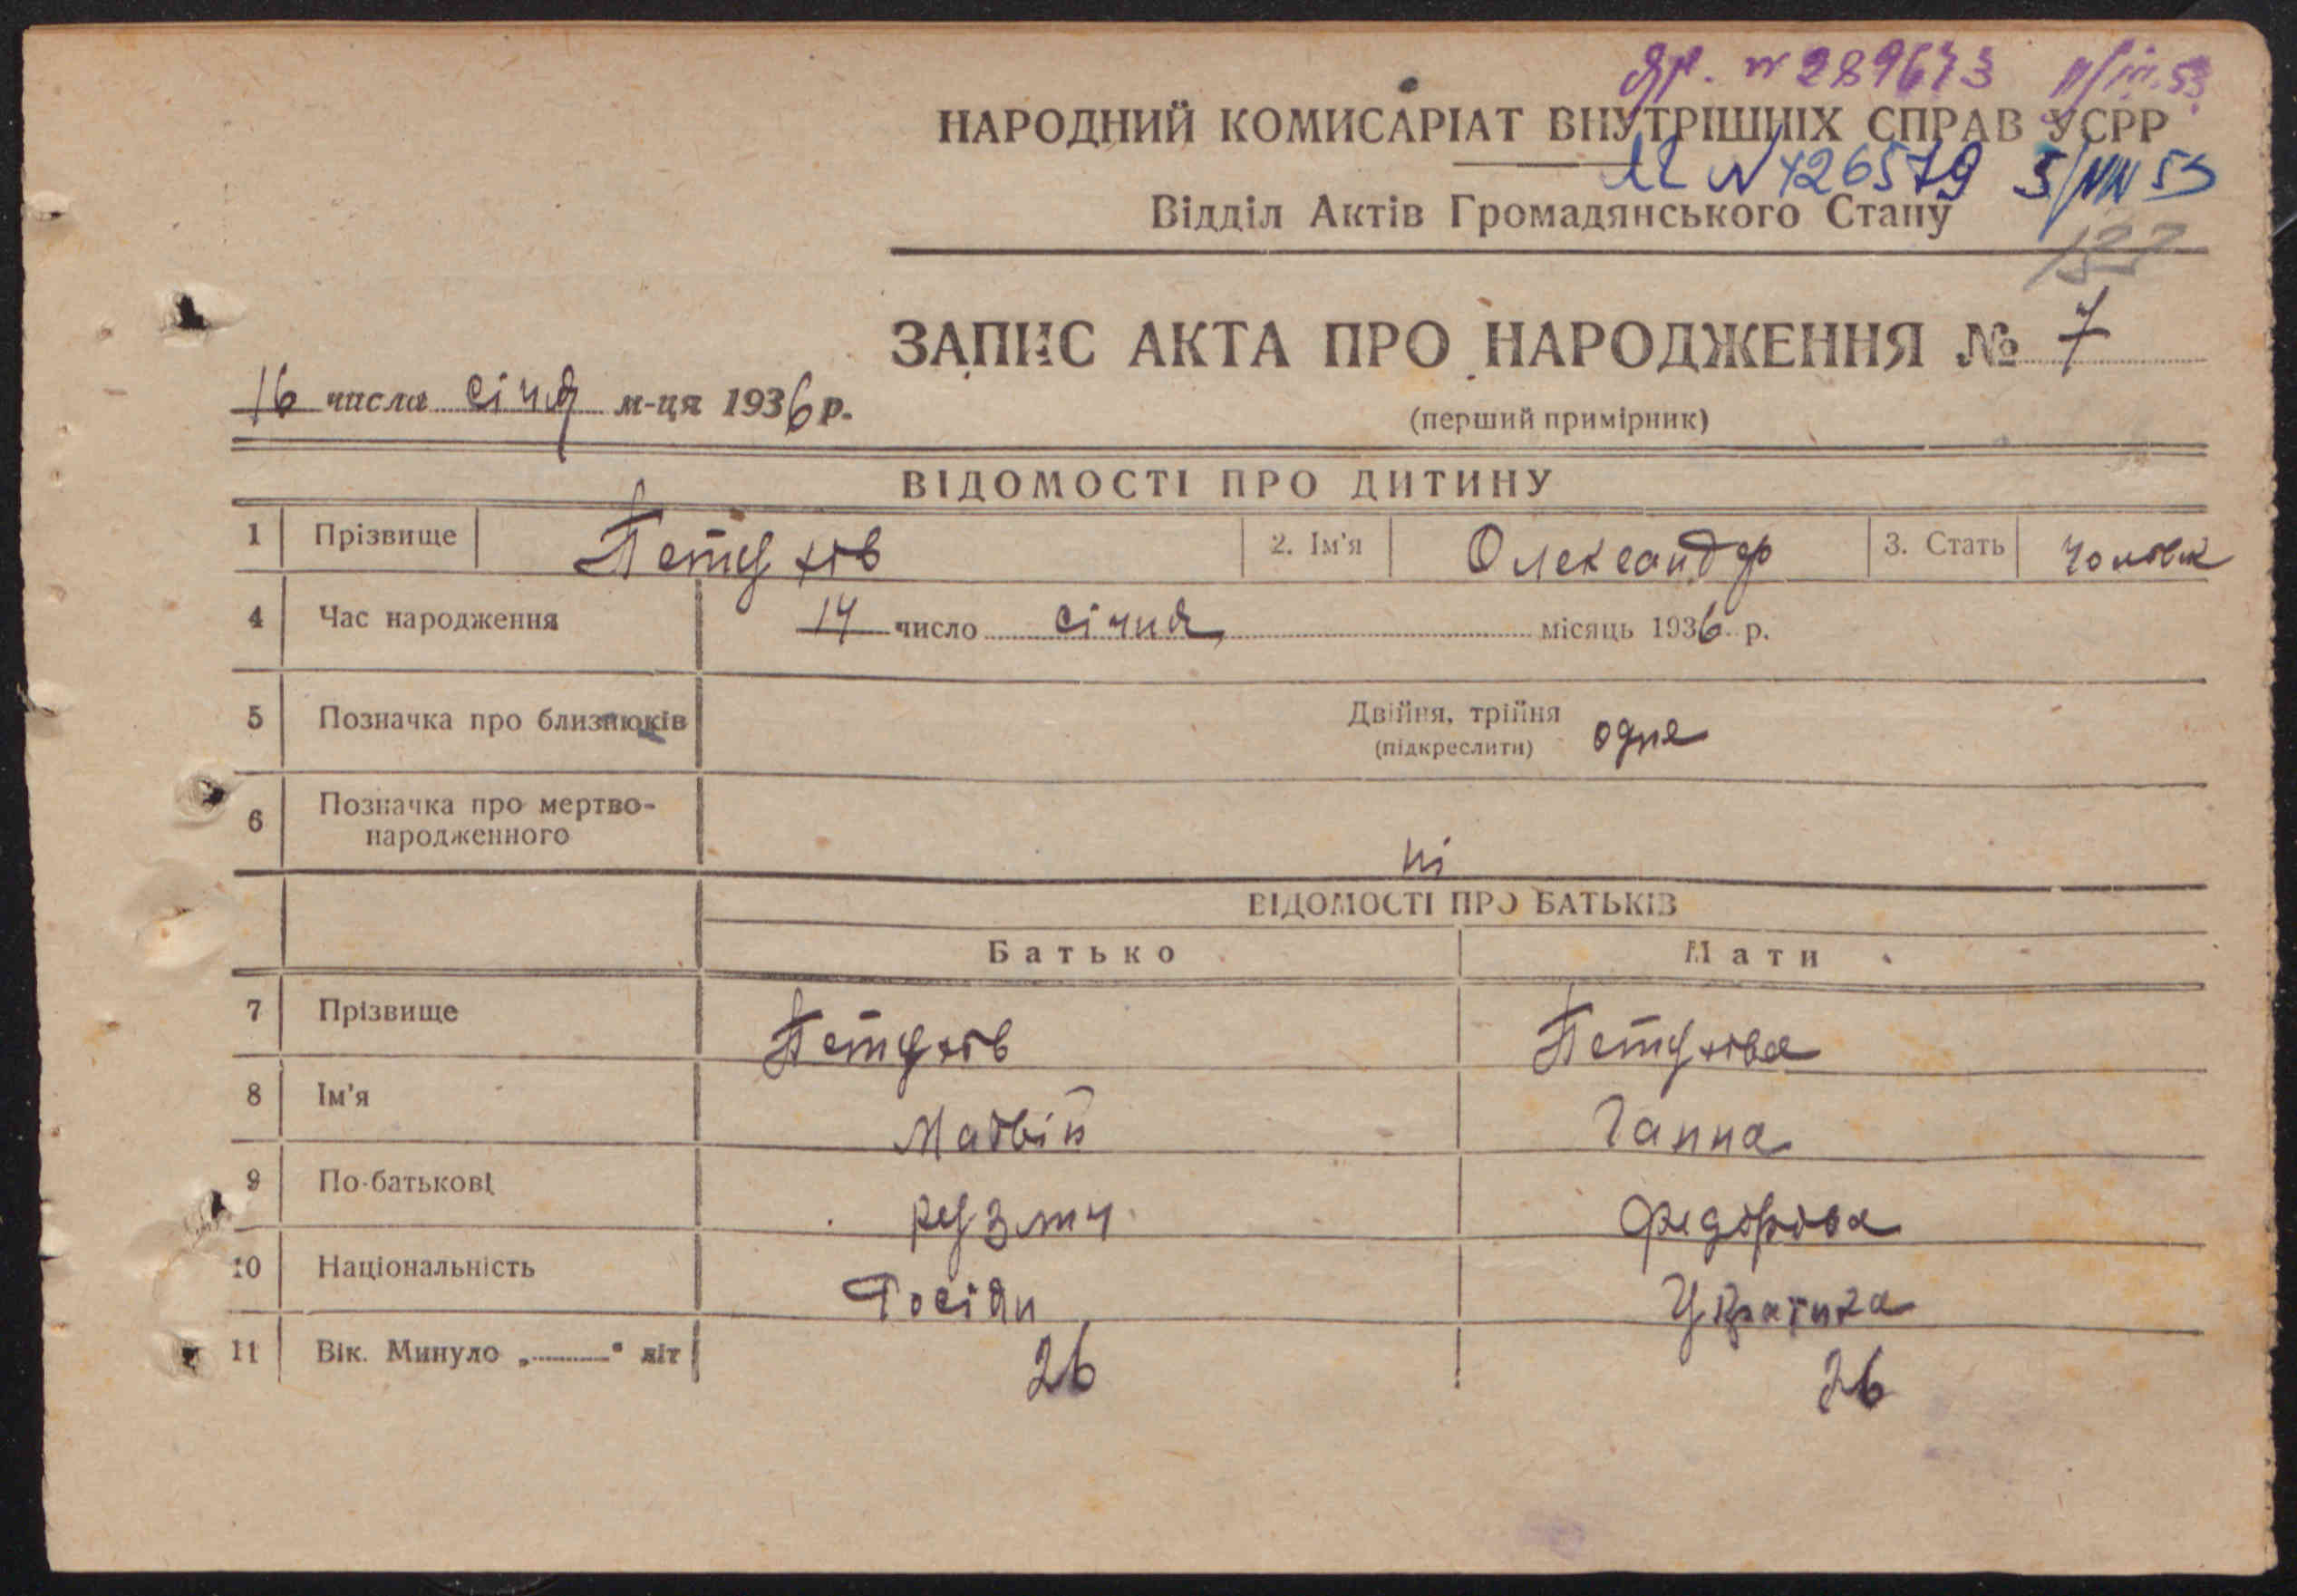 № 289673
НАРОДНИЙ КОМИСАРІАТ ВНУТРІШНІХ СПРАВ УСРР
N 426579
Відділ Актів Громадянського Стану
ЗАПИС АКТА ПРО НАРОДЖЕННЯ № 7
16 числа січня м-ця 1936 р.
(перший примірник)
ВІДОМОСТІ ПРО ДИТИНУ
1 Прізвище Петухів 2. Ім'я Олександр 3. Стать Чоловік
4 Час народження 14 число січня місяць 1936 р.
5 Позначка про близнюків Двійня, трійня одне
(підкреслити)
6 Позначка про мертво-
народженного
ні
ВІДОМОСТІ ПРО БАТЬКІВ
Батько Мати
7 Прізвище Петухів Петухіва
8 Ім'я Матвій Ганна
9 По-батькові Федорівна
10 Національність Росіян Українка
11 Вік. Минуло „ “ літ 26 26